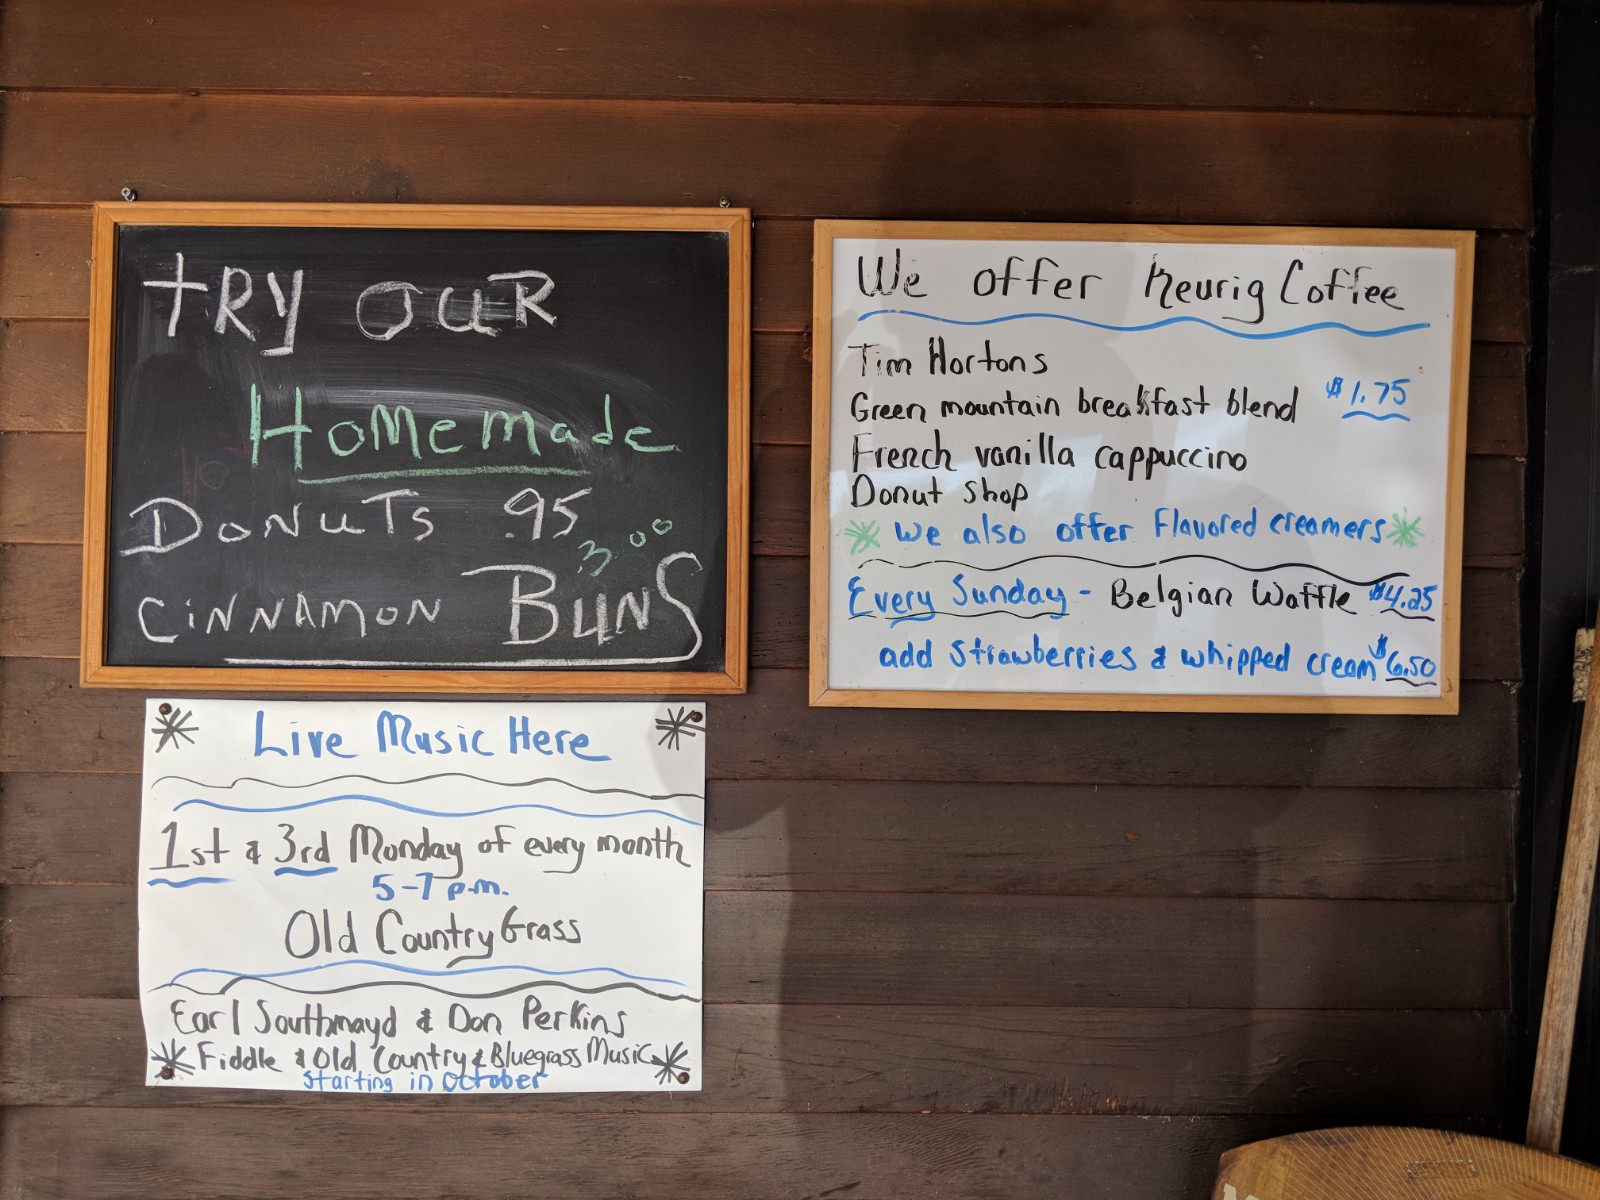 TRY OUR
Homemade
DONUTS .95
3.00
CINNAMON BUNS
We offer Keurig Coffee
Tim Hortons
Green mountain breakfast blend $1.75
French vanilla cappuccino
Donut shop
We also offer Flavored creamers
Every Sunday - Belgian Waffle $4.25
add Strawberries & whipped cream $6.50
Live Music Here
1st & 3rd Monday of every month
5-7 p.m.
Old Country Grass
Earl Southmayd & Don Perkins
Fiddle & Old Country & Bluegrass Music
Starting in October